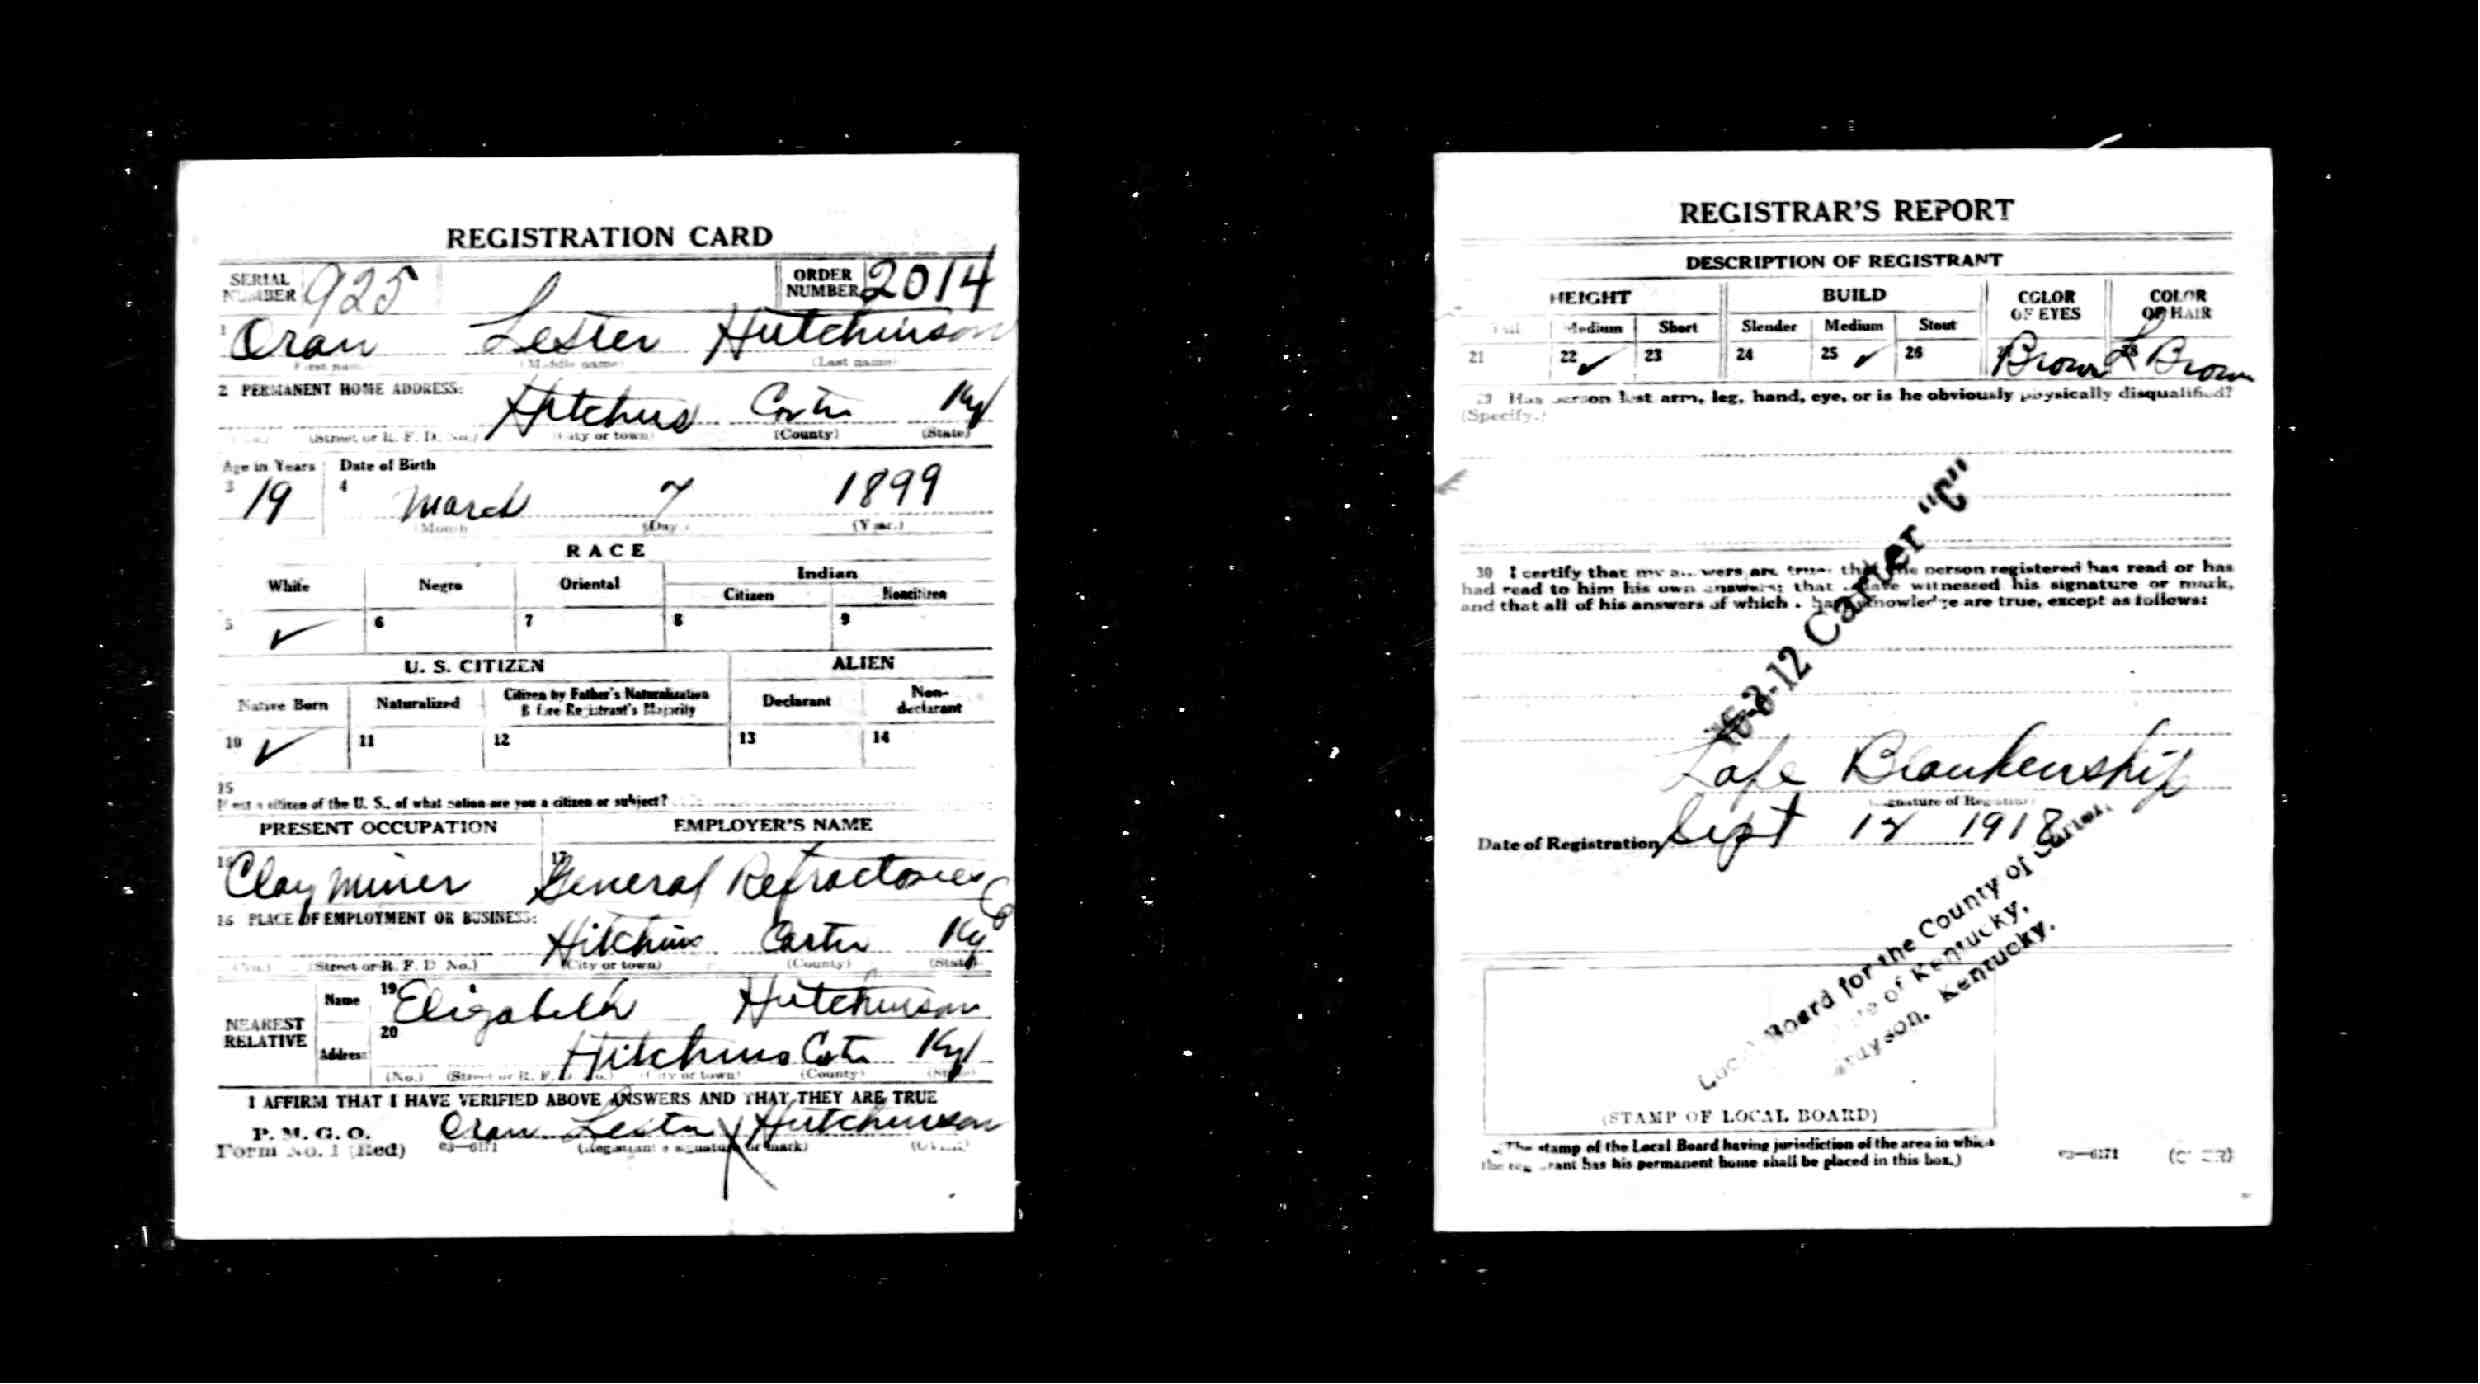 REGISTRATION CARD
SERIAL NUMBER 925
ORDER NUMBER 2014
1 Oran Lester Hutchinson
(Middle name) (Last name)
2 PERMANENT HOME ADDRESS:
Hitchins Carter Ky
(Street or R. F. D. No.) (City or town) (County) (State)
Age in Years Date of Birth
3 19 4 March 7 1899
(Month) (Day) (Year)
RACE
White Negro Oriental Indian
Citizen Noncitizen
5 ✓ 6 7 8 9
U. S. CITIZEN ALIEN
Native Born Naturalized Citizen by Father's Naturalization Before Registrant's Majority Declarant Non-declarant
10 ✓ 11 12 13 14
15
If not a citizen of the U. S., of what nation are you a citizen or subject?
PRESENT OCCUPATION EMPLOYER'S NAME
16 Clay Miner 17 General Refractories Co
18 PLACE OF EMPLOYMENT OR BUSINESS:
Hitchins Carter Ky
(No.) (Street or R. F. D. No.) (City or town) (County) (State)
NEAREST RELATIVE
Name 19 Elizabeth Hutchinson
Address 20 Hitchins Carter Ky
(No.) (Street or R. F. D. No.) (City or town) (County) (State)
I AFFIRM THAT I HAVE VERIFIED ABOVE ANSWERS AND THAT THEY ARE TRUE
P. M. G. O.
Form No. 1 (Red) 03—6171 Oran Lester X Hutchinson
(Registrant's signature or mark) (OVER)
REGISTRAR'S REPORT
DESCRIPTION OF REGISTRANT
HEIGHT BUILD COLOR OF EYES COLOR OF HAIR
Tall Medium Short Slender Medium Stout
21 22 ✓ 23 24 25 ✓ 26 Brown 28 L Brown
29 Has person lost arm, leg, hand, eye, or is he obviously physically disqualified?
(Specify.)
30 I certify that my answers are true; that the person registered has read or has
had read to him his own answers; that I have witnessed his signature or mark,
and that all of his answers of which I have knowledge are true, except as follows:
16-3-12 Carter "C"
Lafe Blankenship
(Signature of Registrar)
Date of Registration Sept 12 1918
Local Board for the County of Carter,
State of Kentucky,
Grayson, Kentucky.
(STAMP OF LOCAL BOARD)
(The stamp of the Local Board having jurisdiction of the area in which
the registrant has his permanent home shall be placed in this box.)
03—6171 (OVER)